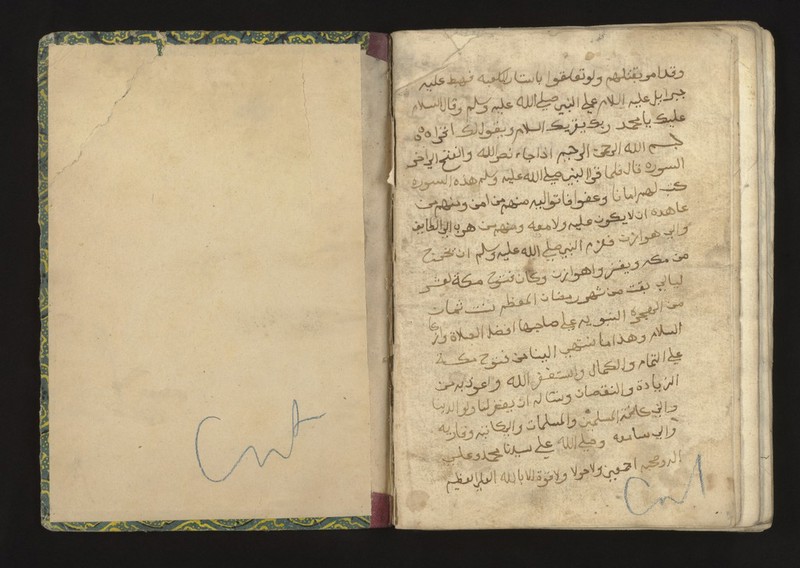 وقد امر بقتلهم ولو تعلقوا باستار الكعبه فهبط عليه
جبرايل عليه السلام على النبي صلى الله عليه وسلم وقال السلام
عليك يا محمد ربك يقريك السلام ويقول لك اقراه
بسم الله الرحمن الرحيم اذا جاء نصر الله والفتح الى اخر
السوره قال فلما قرا النبي صلى الله عليه وسلم هذه السوره
كتب لهم امانا وعفوا فاتوا اليه منهم من امن ومنهم من
عاهده ان لا يكون عليه ولا معه ومنهم من هرب الى الطايف
والى هوازن فلزم النبي صلى الله عليه وسلم ان يخرج
من مكه ويغز واهوازن وكان فتوح مكة لعشر
ليالي بقت من شهر رمضان المعظم سنت ثمان
من الهجره النبويه على صاحبها افضل الصلاة وازكا
السلام وهذا ما انتهى الينا من فتوح مكة
على التمام والكمال واستغفر الله واعوذ به من
الزيادة والنقصان ونساله ان يغفر لنا ولوالدينا
والى كافة المسلمين والمسلمات والى كاتبه وقاريه
والى سامعه وصلى الله على سيدنا محمد وعلى
اله وصحبه اجمعين ولا حولا ولا قوة الا بالله العلي العظيم